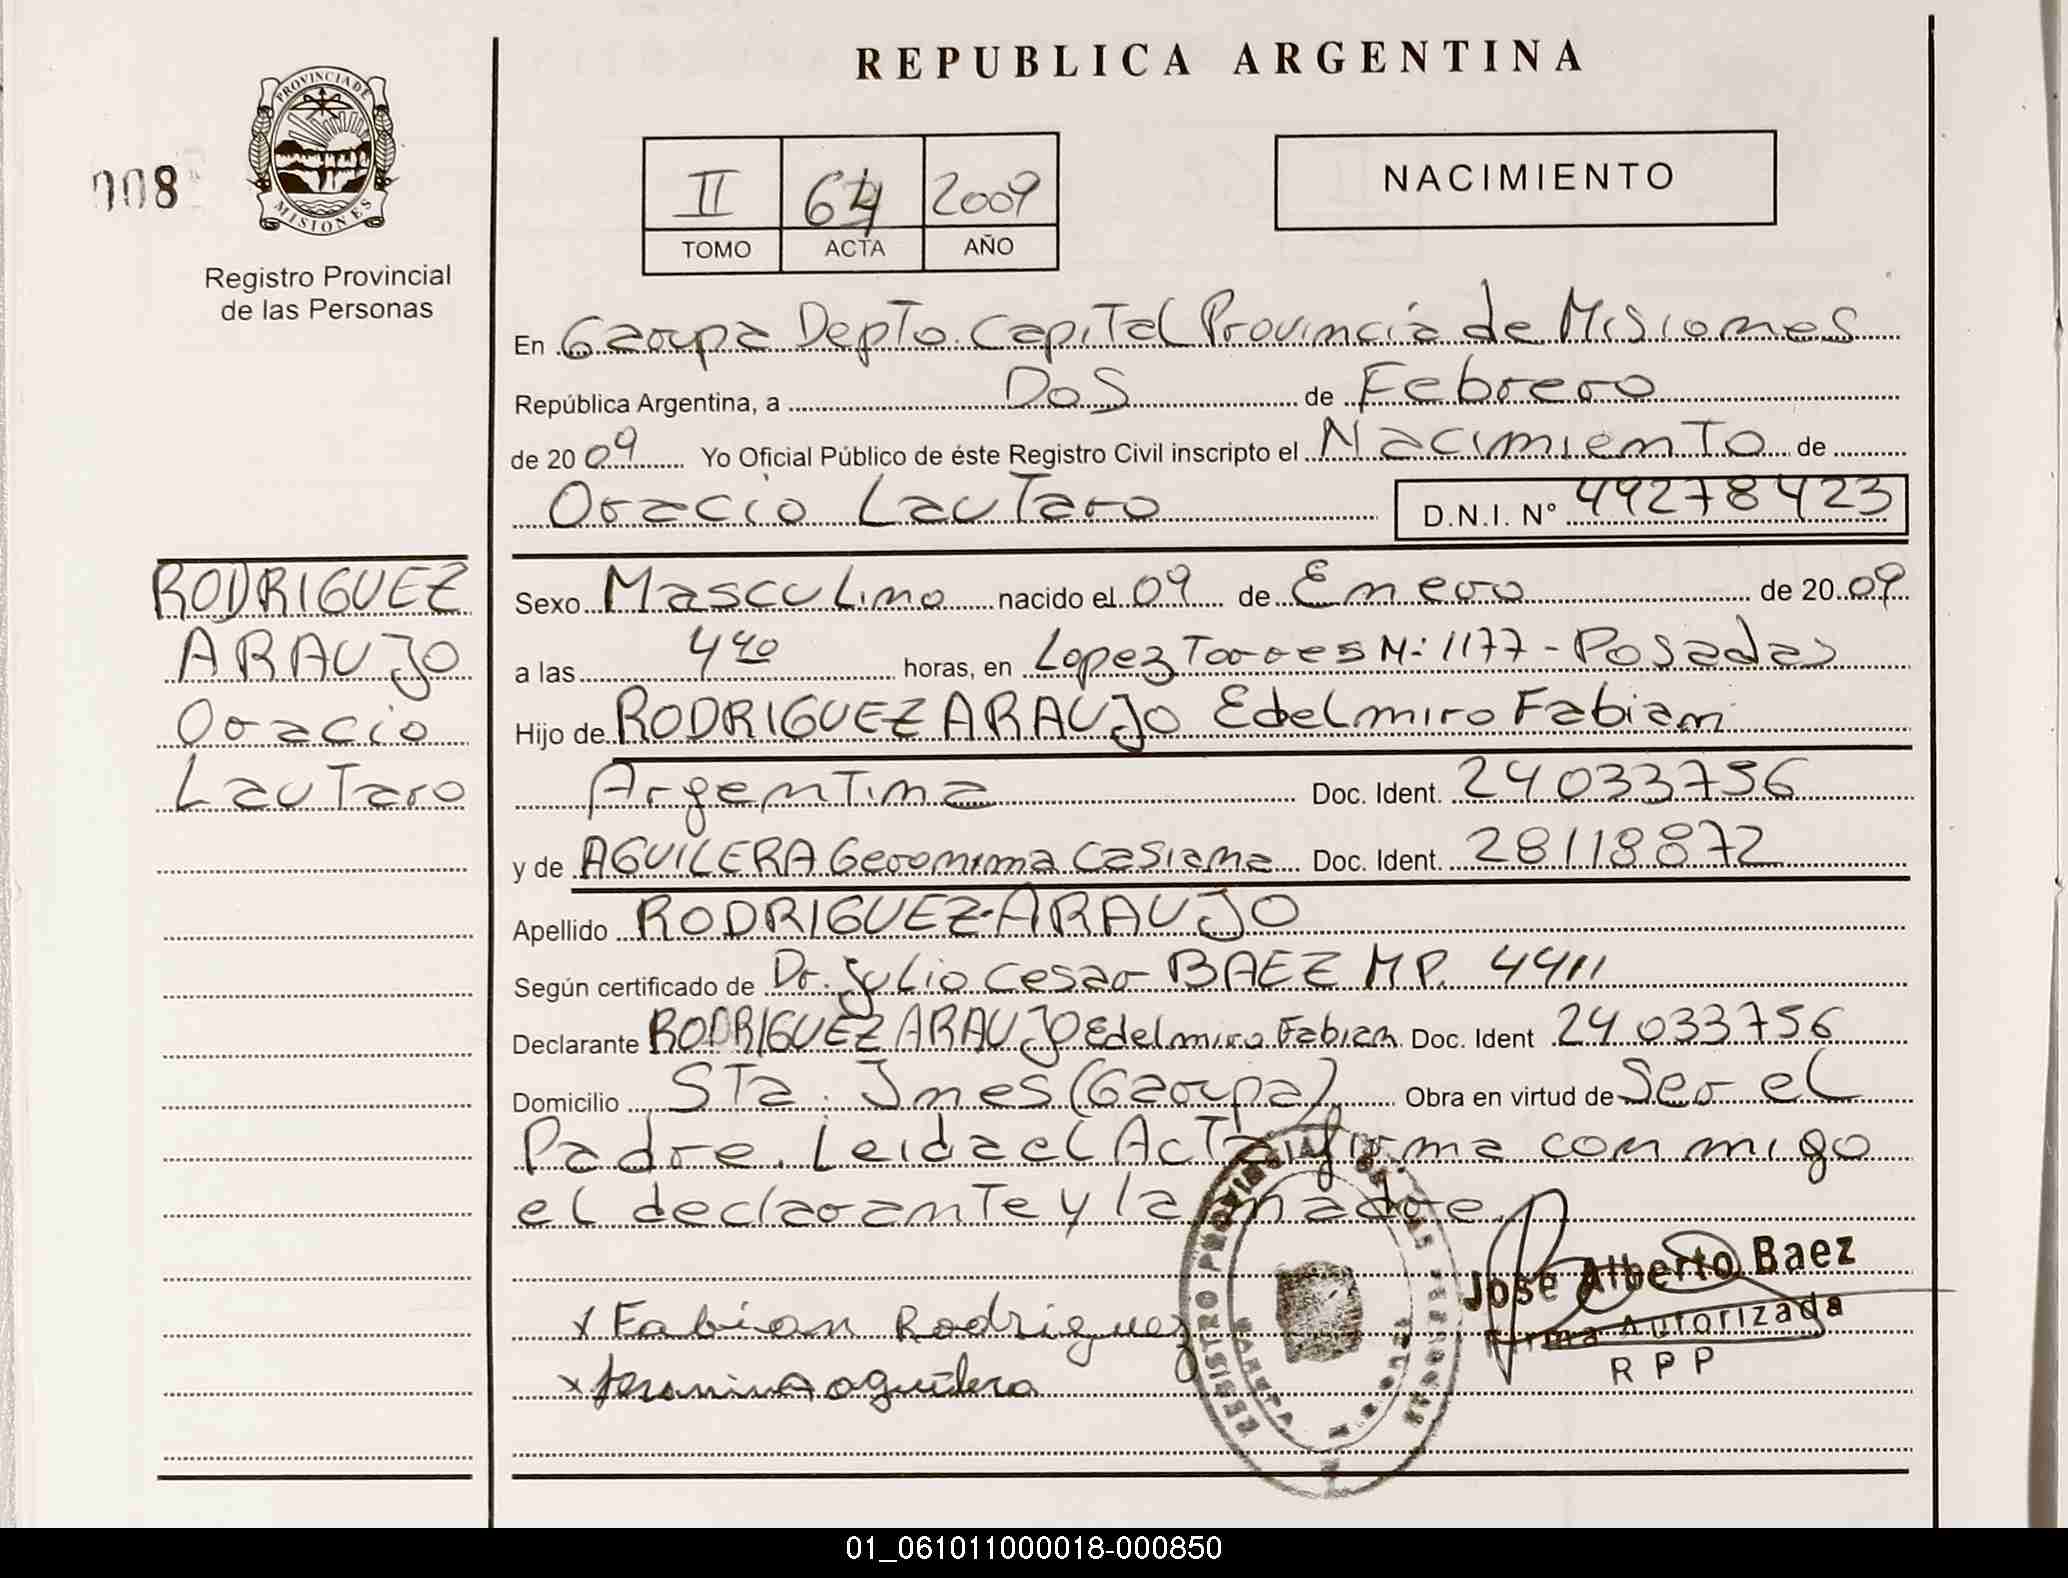 REPUBLICA ARGENTINA
PROVINCIA DE
MISIONES
008
Registro Provincial
de las Personas
II 64 2009
TOMO ACTA AÑO
NACIMIENTO
En Garupa Depto. Capital Provincia de Misiones
República Argentina, a Dos de Febrero
de 2009 Yo Oficial Público de éste Registro Civil inscripto el Nacimiento de
Oracio Lautaro D.N.I. N° 49278423
RODRIGUEZ
ARAUJO
Oracio
Lautaro
Sexo Masculino nacido el 09 de Enero de 2009
a las 4 40 horas, en Lopez Torres N: 1177 - Posadas
Hijo de RODRIGUEZ ARAUJO Edelmiro Fabian
Argentina Doc. Ident. 24033756
y de AGUILERA Geronima Casiana Doc. Ident. 28118872
Apellido RODRIGUEZ-ARAUJO
Según certificado de Dr. Julio Cesar BAEZ M P. 4411
Declarante RODRIGUEZ ARAUJO Edelmiro Fabian Doc. Ident 24033756
Domicilio Sta. Ines (Garupa) Obra en virtud de Ser el
Padre. Leida el Acta firma con migo
el declarante y la madre.
x Fabian Rodriguez
x Jeronima aguilera
REGISTRO PROVINCIAL DE LAS PERSONAS
Jose Alberto Baez
Firma Autorizada
R P P
01_061011000018-000850